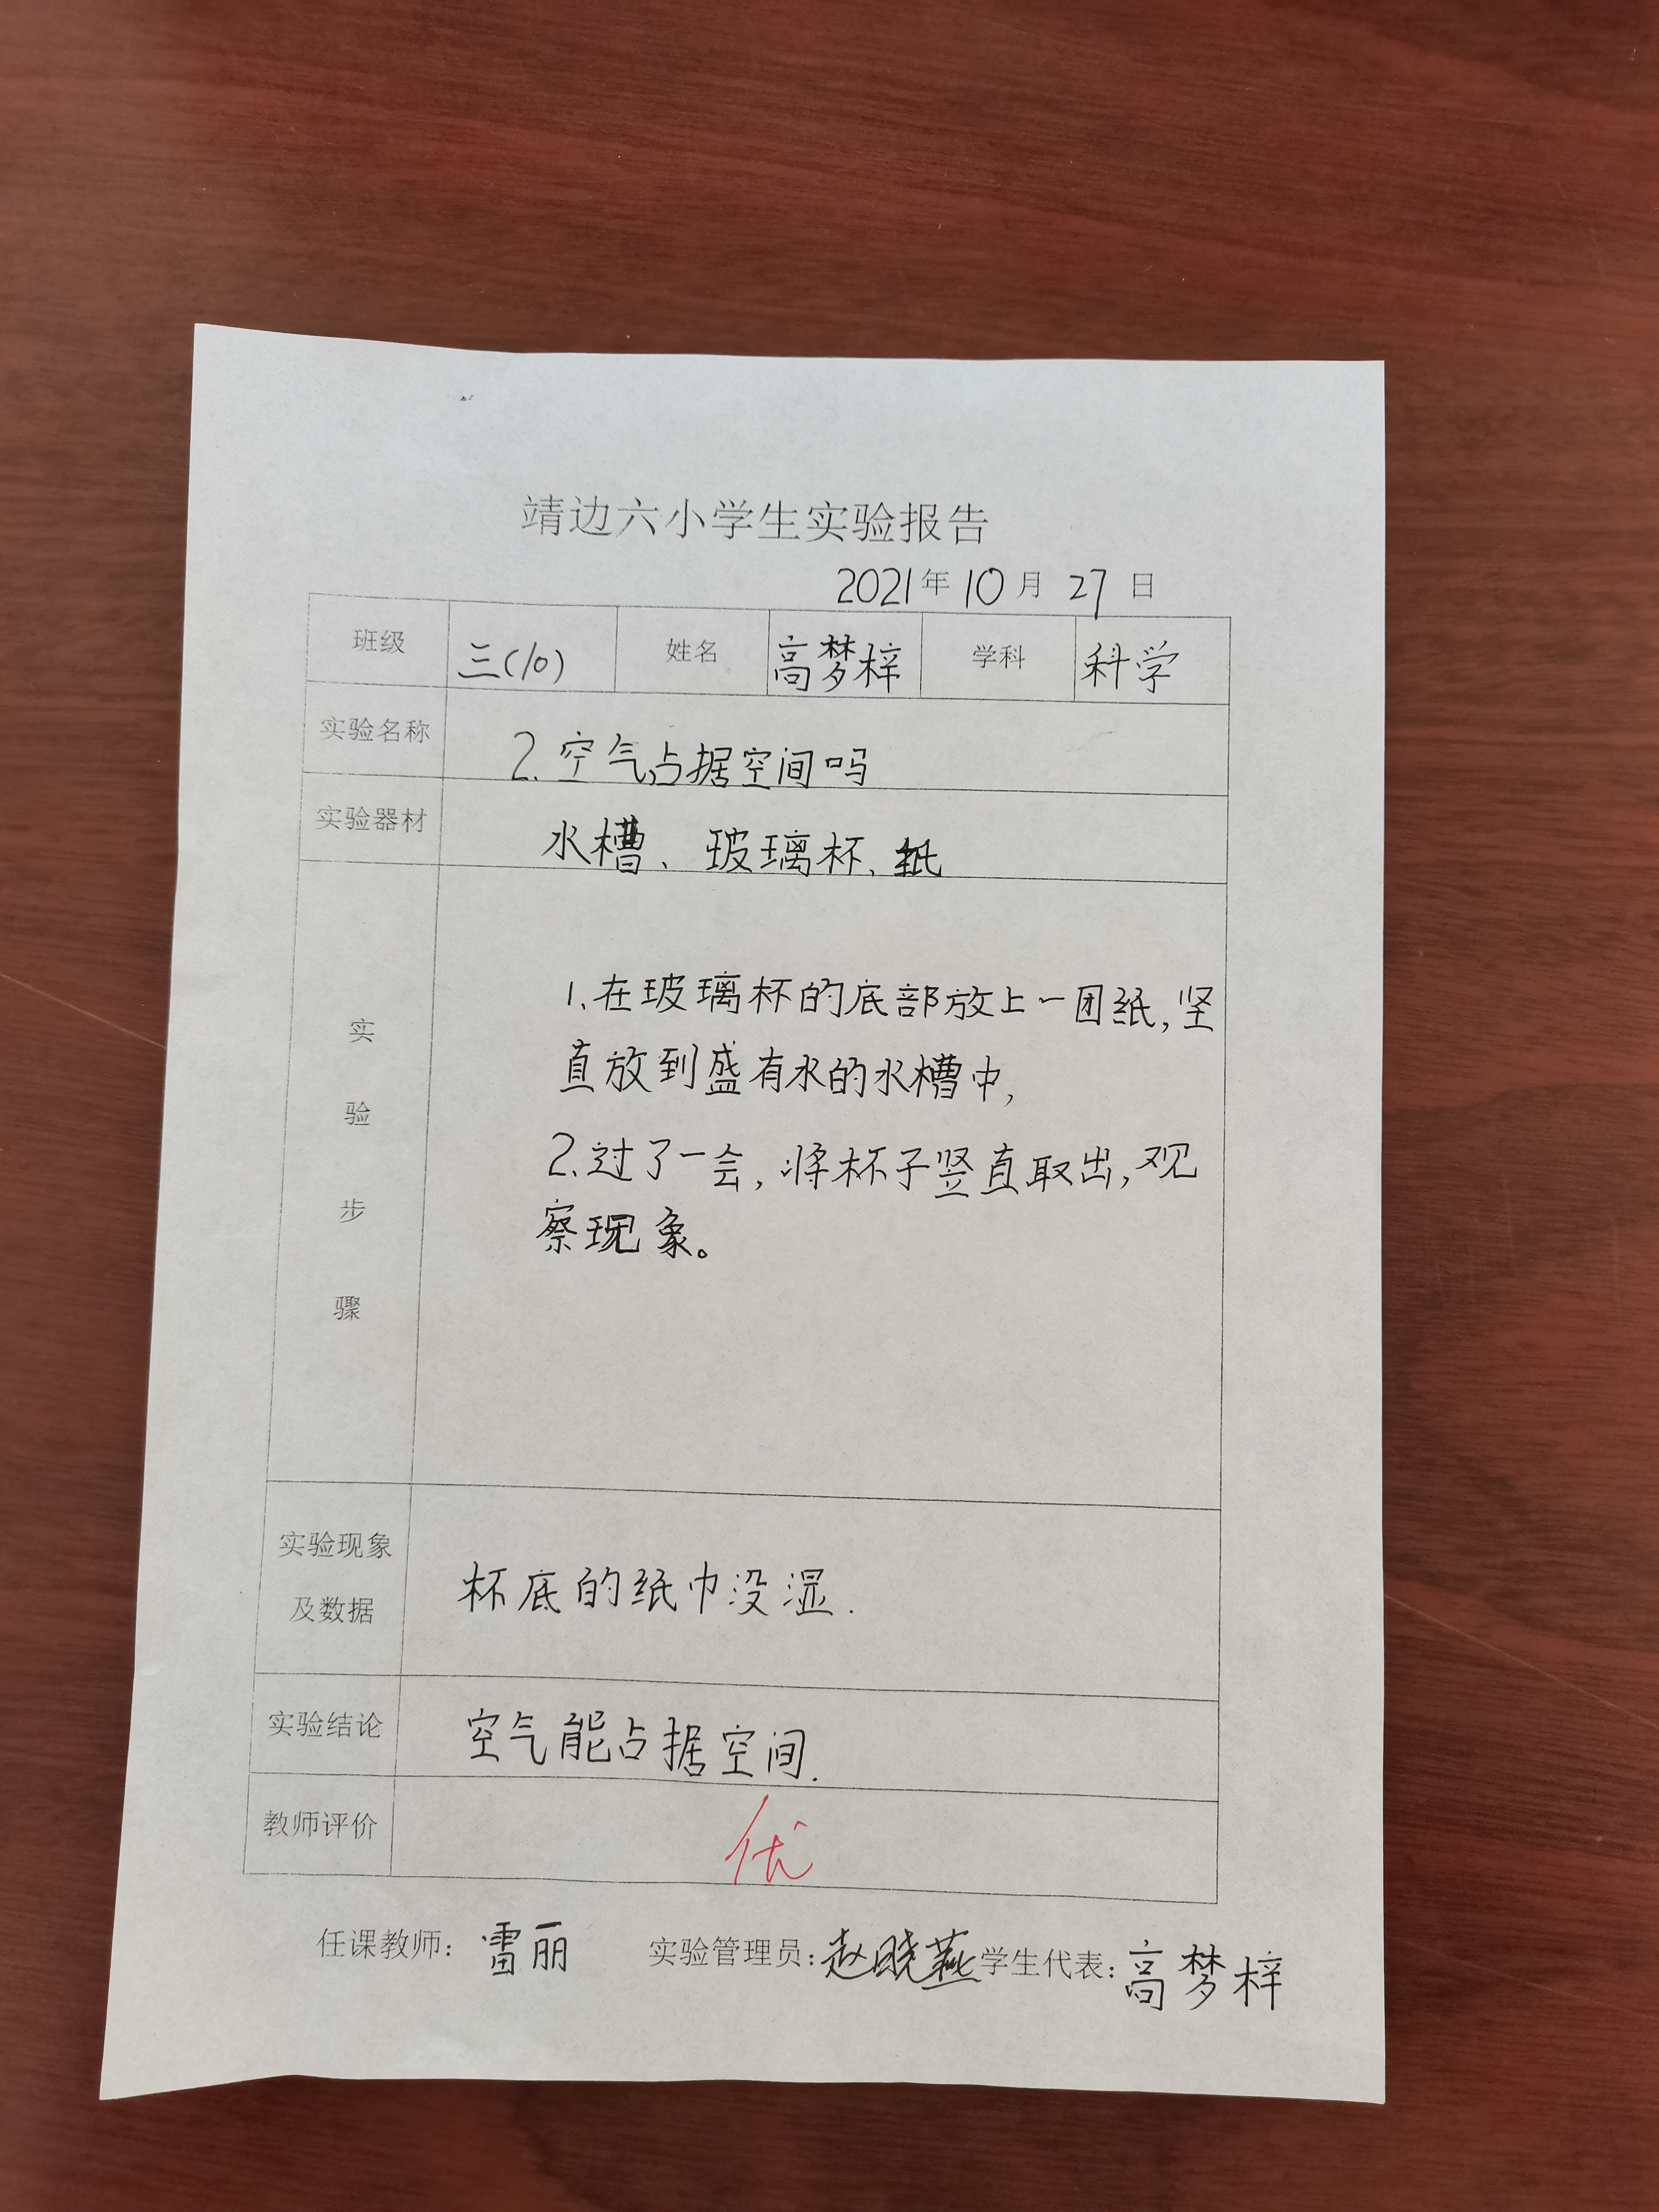 靖边六小学生实验报告
2021年10月27日
班级 三(10) 姓名 高梦梓 学科 科学
实验名称 2.空气占据空间吗
实验器材 水槽、玻璃杯、纸
实验步骤
1.在玻璃杯的底部放上一团纸,竖
直放到盛有水的水槽中,
2.过了一会,将杯子竖直取出,观
察现象。
实验现象
及数据
杯底的纸巾没湿.
实验结论 空气能占据空间.
教师评价 优
任课教师: 雷丽 实验管理员:赵晓燕 学生代表:高梦梓